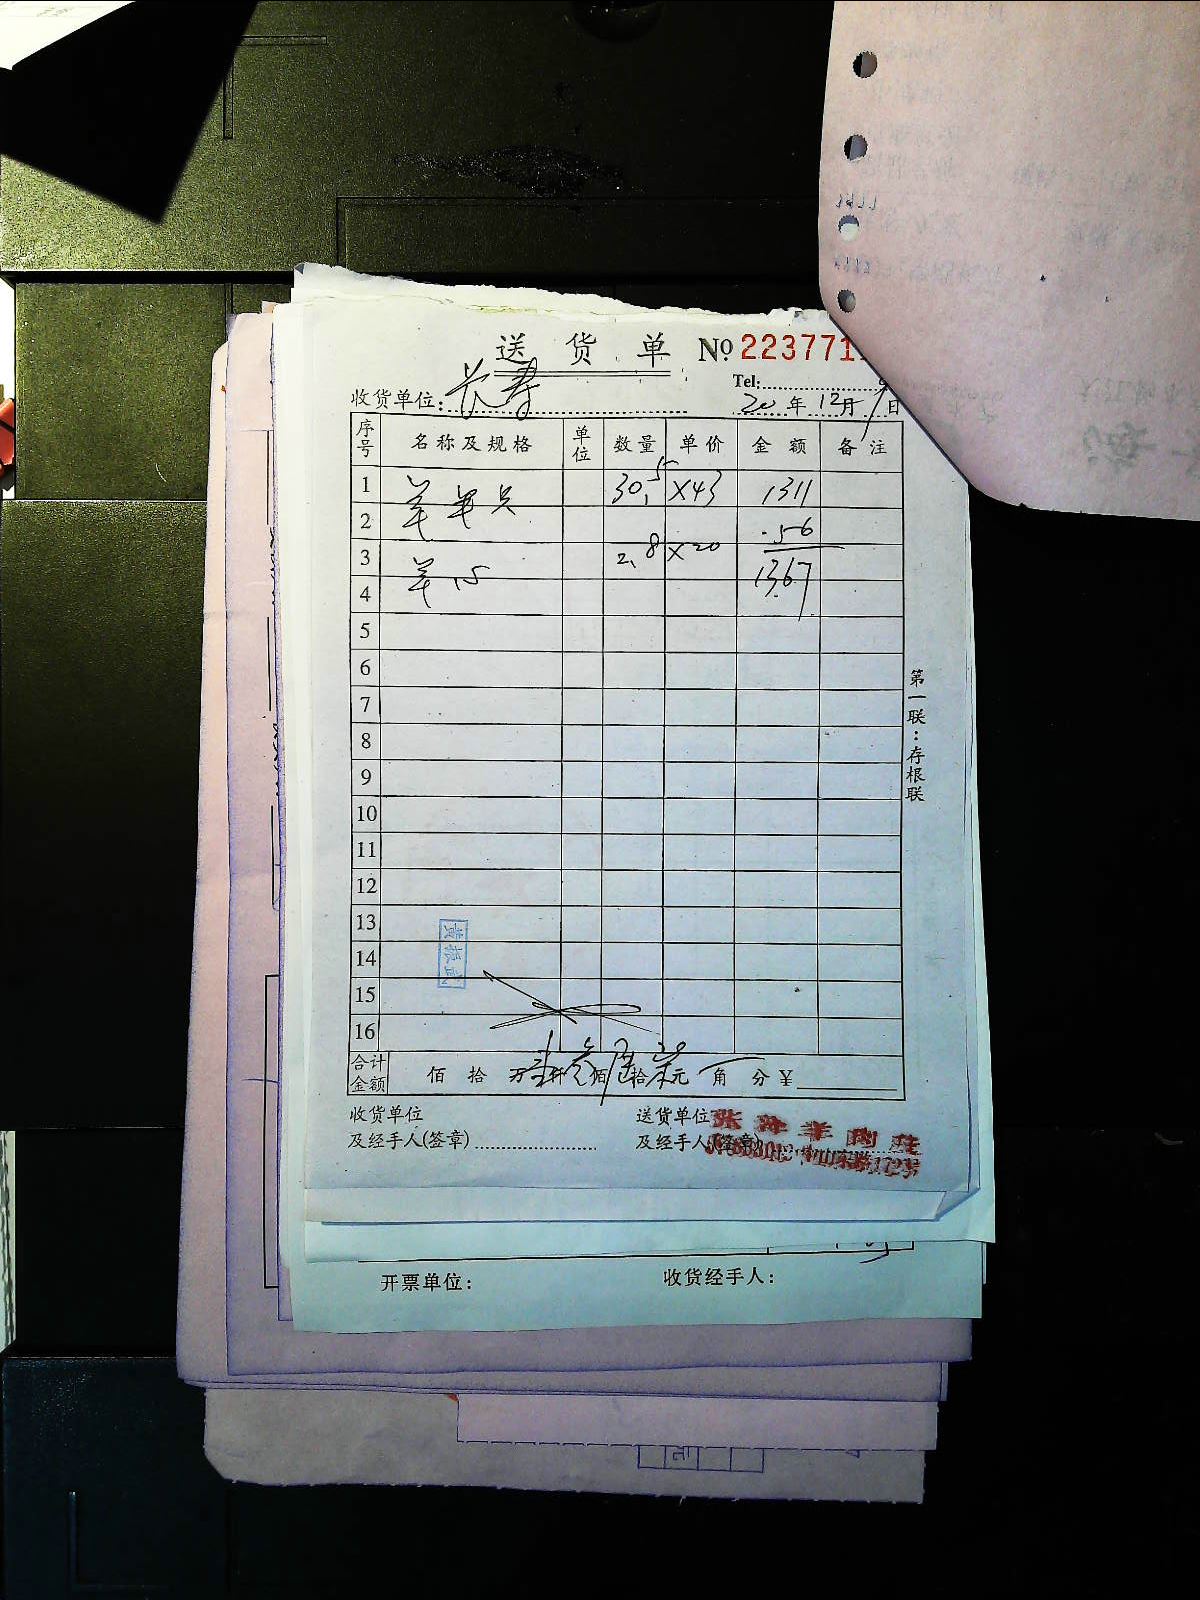 送货单 № 223771
Tel:
收货单位: 长寿 20年12月9日
序号 名称及规格 单位 数量 单价 金额 备注
1 羊半只 30.5 X43 1311
2 56
3 羊 2.8 X20 1367
4
5
6
7
8
9
10
11
12
13
14
15
16
合计金额 佰 拾 万 仟 佰 拾 元 角 分 ¥
收货单位 送货单位
及经手人(签章) 及经手人(签章)
中山东路172号
第一联:存根联
开票单位: 收货经手人: